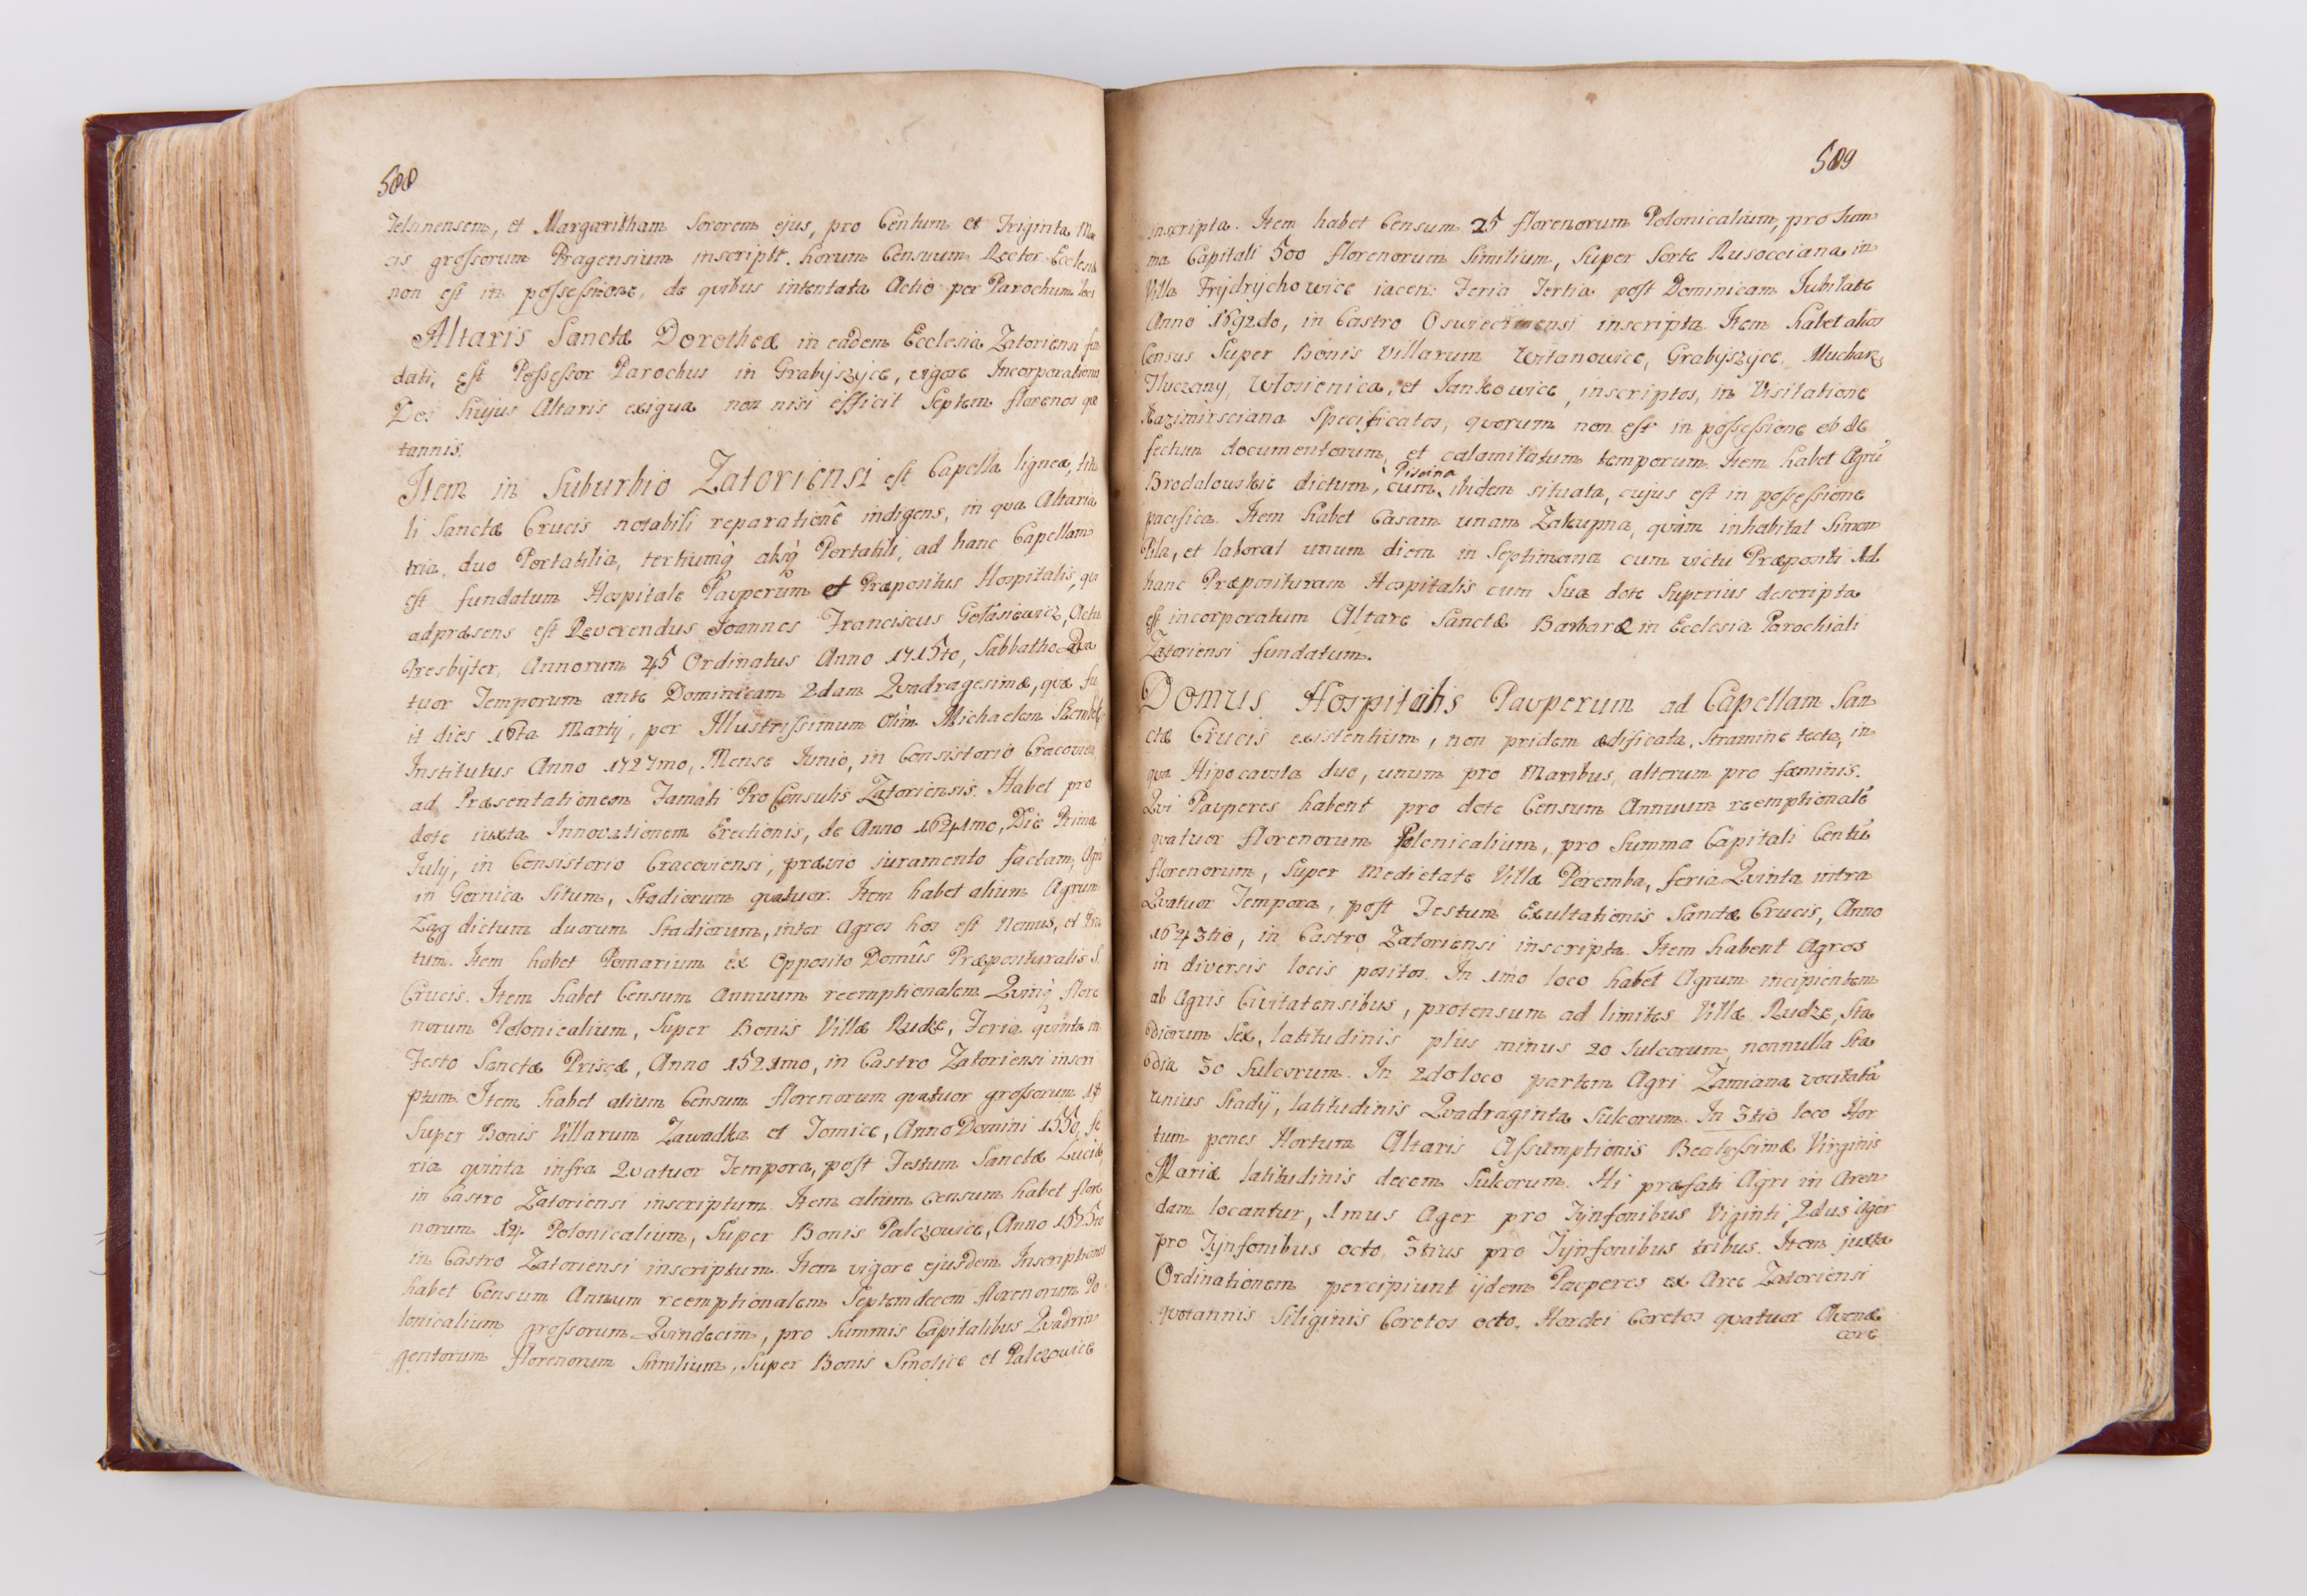 588
Telsnensem, et Margaritham Sororem ejus, pro Centum et Triginta Ma
cis grossorum Pragensium inscript. horum Censuum Rector Ecclesiæ
non est in possessione, de quibus intentata Actio per Parochum loci
Altaris Sanctæ Dorotheæ in eadem Ecclesia Zatoriensi fun
dati, est Possessor Parochus in Grabyszyce, vigore Incorporationis
Dos hujus Altaris exigua non nisi efficit Septem florenos quo
tannis.
Item in Suburbio Zatoriensi est Capella lignea, titu
li Sanctæ Crucis notabili reparatione indigens, in qua Altaria
tria, duo Portatilia, tertiumq absq Portatili, ad hanc Capellam
est fundatum Hospitale Pauperum et Præpositus Hospitalis, qui
adpræsens est Reverendus Joannes Franciscus Gerlasiewicz, Actu
Presbyter, Annorum 45 Ordinatus Anno 1715to, Sabbatho Qva
tuor Temporum ante Dominicam 2dam Qvadragesimæ, quæ fu
it dies 16ta Martij, per Illustrissimum Olim Michaelem Szembek
Institutus Anno 1727mo, Mense Junio, in Consistorio Cracovien
ad Præsentationem Famati ProConsulis Zatoriensis. Habet pro
dote iuxta Innovationem Erectionis, de Anno 1641mo, Die Prima
Julij, in Consistorio Cracoviensi, prævio juramento factam, Agrū
in Gornica Situm, Stadiorum quatuor. Item habet alium Agrum
Zag dictum duorum Stadiorum, inter Agros hos est Nemus, et Pra
tum. Item habet Pomarium ex Opposito Domûs Præposituralis S.
Crucis. Item habet Censum Annuum reemptionalem Qvinq flore
norum Polonicalium, Super Bonis Villæ Rudze, Feria quinta in
Festo Sanctæ Priscæ, Anno 1521mo, in Castro Zatoriensi inscri
ptum. Item habet alium Censum florenorum quatuor grossorum 18
Super Bonis Villarum Zawadka et Tomice, Anno Domini 1550, fe
ria quinta infra Qvatuor Tempora, post Festum Sanctæ Luciæ,
in Castro Zatoriensi inscriptum. Item alium Censum habet flore
norum 14 Polonicalium, Super Bonis Palczowice, Anno 1525to
in Castro Zatoriensi inscriptum. Item vigore ejusdem Inscriptionis
habet Censum Annuum reemptionalem Septemdecem florenorum Po
lonicalium grossorum Qvindecim, pro Summis Capitalibus Qvadrin
gentorum florenorum Similium, Super Bonis Smolice et Palczowice
589
inscripta. Item habet Censum 25 florenorum Polonicalium, pro Sum
ma Capitali 500 florenorum Similium, Super Sorte Rusocciana in
Villa Frydrychowice iacen: Feria Tertia post Dominicam Jubilate
Anno 1692do, in Castro Oswiecimensi inscripta. Item habet alios
Census Super Bonis Villarum Witanowice, Grabyszyce, Mucharz,
Tluczany, Włosienica, et Jankowice, inscriptos, in Visitatione
Kazimirsciana Specificatos, quorum non est in possessione ob de
fectum documentorum, et calamitatum temporum. Item habet Agrū
Brodalowskie dictum, cum Piscina ibidem situata, cujus est in possessione
pacifica. Item habet Casam unam Zakupna, quàm inhabitat Simon
Pila, et laborat unum diem in Septimana cum victu Præpositi. Ad
hanc Præposituram Hospitalis cum Sua dote Superius descripta
est incorporatum Altare Sanctæ Barbaræ in Ecclesia Parochiali
Zatoriensi fundatum.
Domus Hospitalis Pauperum ad Capellam San
ctæ Crucis existentium, non pridem ædificata, Stramine tecta, in
qua Hipocausta duo, unum pro Maribus, alterum pro fæminis.
Qvi Pauperes habent pro dote Censum Annuum reemptionalē
quatuor florenorum Polonicalium, pro Summa Capitali Centū
florenorum, Super Medietate Villæ Poremba, feria Qvinta intra
Qvatuor Tempora, post Festum Exultationis Sanctæ Crucis, Anno
1643tio, in Castro Zatoriensi inscripta. Item habent Agros
in diversis locis positos. In 1mo loco habet Agrum incipientem
ab Agris Civitatensibus, protensum ad limites Villæ Rudze, Sta
diorum Sex, latitudinis plus minus 20 Sulcorum, nonnulla Sta
dia 30 Sulcorum. In 2do loco partem Agri Zamiana vocitatā
unius Stadij, latitudinis Qvadraginta Sulcorum. In 3tio loco Hor
tum penes Hortum Altaris Assumptionis Beatissimæ Virginis
Mariæ latitudinis decem Sulcorum. Hi præfati Agri in Aren
dam locantur, 1mus Ager pro Tynfonibus Viginti, 2dus Ager
pro Tynfonibus octo, 3tius pro Tynfonibus tribus. Item juxta
Ordinationem percipiunt ijdem Pauperes ex Arce Zatoriensi
quotannis Siliginis Coretos octo, Hordei Coretos quatuor Avenæ
core